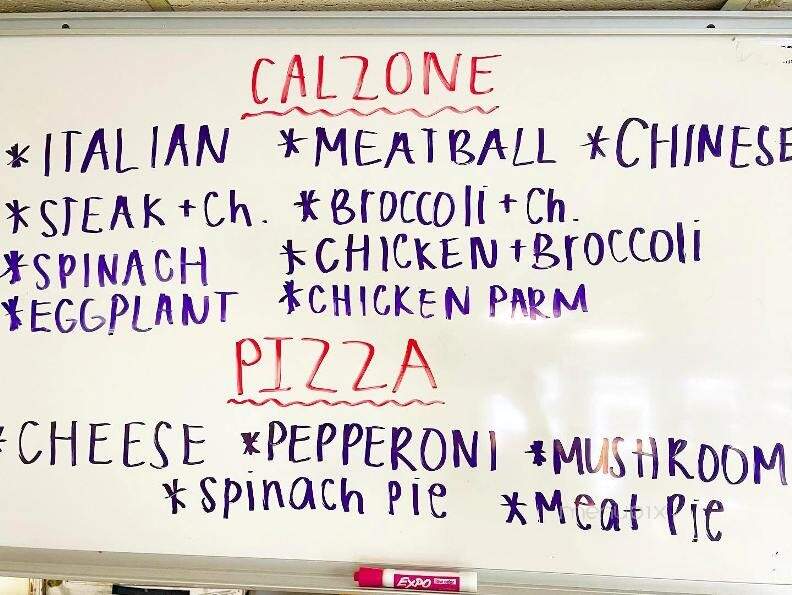 CALZONE
*ITALIAN *MEATBALL *CHINESE
*STEAK + Ch. *Broccoli + Ch.
*SPINACH *CHICKEN + Broccoli
*EGGPLANT *CHICKEN PARM
PIZZA
*CHEESE *PEPPERONI *MUSHROOM
*Spinach Pie *Meat Pie
EXPO